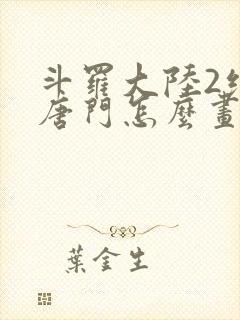 斗羅大陸2絕
唐門怎麼畫
葉金生